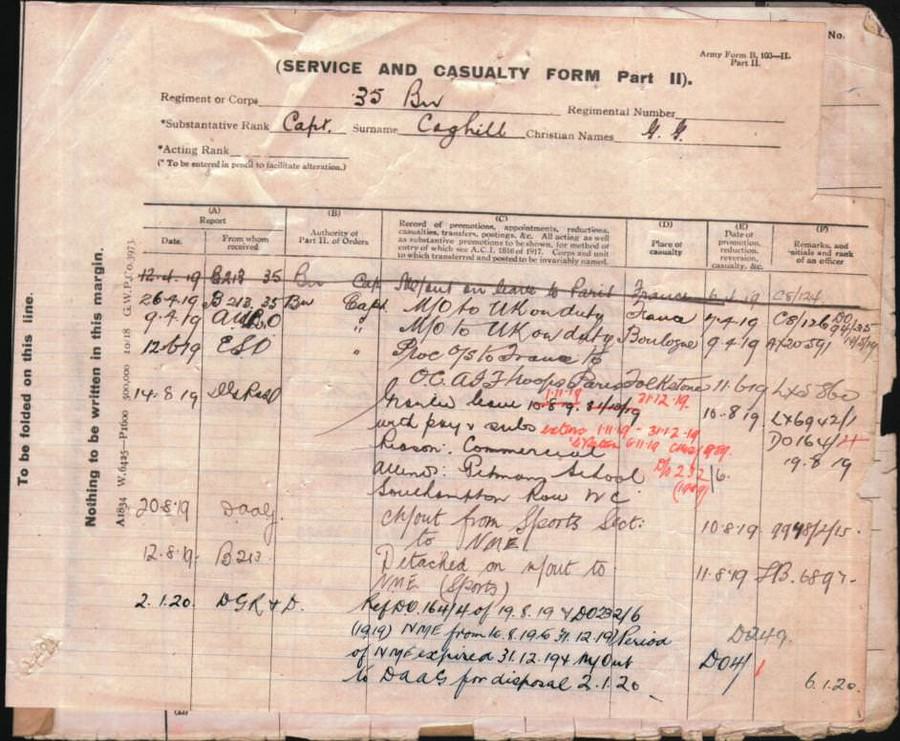 No.
Army Form B. 103—II.
Part II.
(SERVICE AND CASUALTY FORM Part II).
Regiment or Corps 35 Bn Regimental Number
*Substantive Rank Capt. Surname Coghill Christian Names G. G.
*Acting Rank
(* To be entered in pencil to facilitate alteration.)
To be folded on this line.
Nothing to be written in this margin.
A1834 W.6425—P1600 500,000 10/18 G.W.P.Co.3973.
(A)
Report
Date.
From whom
received
(B)
Authority of
Part II. of Orders
(C)
Record of promotions, appointments, reductions,
casualties, transfers, postings, &c. All acting as well
as substantive promotions to be shown, for method of
entry of which see A.C.I. 1816 of 1917. Corps and unit
to which transferred and posted to be invariably named.
(D)
Place of
casualty
(E)
Date of
promotion,
reduction,
reversion,
casualty, &c.
(F)
Remarks, and
initials and rank
of an officer
12.4.19 B213 35 Bn Capt M/out on leave to Paris France 6.4.19 C8/124
26.4.19 B 213. 35 Bn Capt M/O to UK on duty France 7.4.19 C8/126 DO
9.4.19 " M/O to UK on duty Boulogne 9.4.19 AX2059/
12.6.19 " Proc O/S to France to
O.C. AIF Troops Paris Folkstone 11.6.19 LX5860
14.8.19 Granted leave 10.8.19. 31/10/19 10.8.19 LX6942/1
1.11.19 31.12.19.
with pay & subs extens 1.11.19 - 31.12.19 DO164/4
Reason: Commercial 19.8.19
Attend: Pitmans School DO 232/6.
(1919)
Southampton Row WC
20.8.19 DAAG. M/out from Sports Sect: 10.8.19. 9948/2/15.
to NME
12.8.19. B213. Detached on m/out to 11.8.19 JB.6897.
NME (Sports)
2.1.20. D G R & D. Ref DO.164/4 of 19.8.19 & DO232/6
(1919) NME from 10.8.19 to 31.12.19 Period D249.
of NME expired 31.12.19 & M/Out DO4/1
to DAAG for disposal 2.1.20 6.1.20.